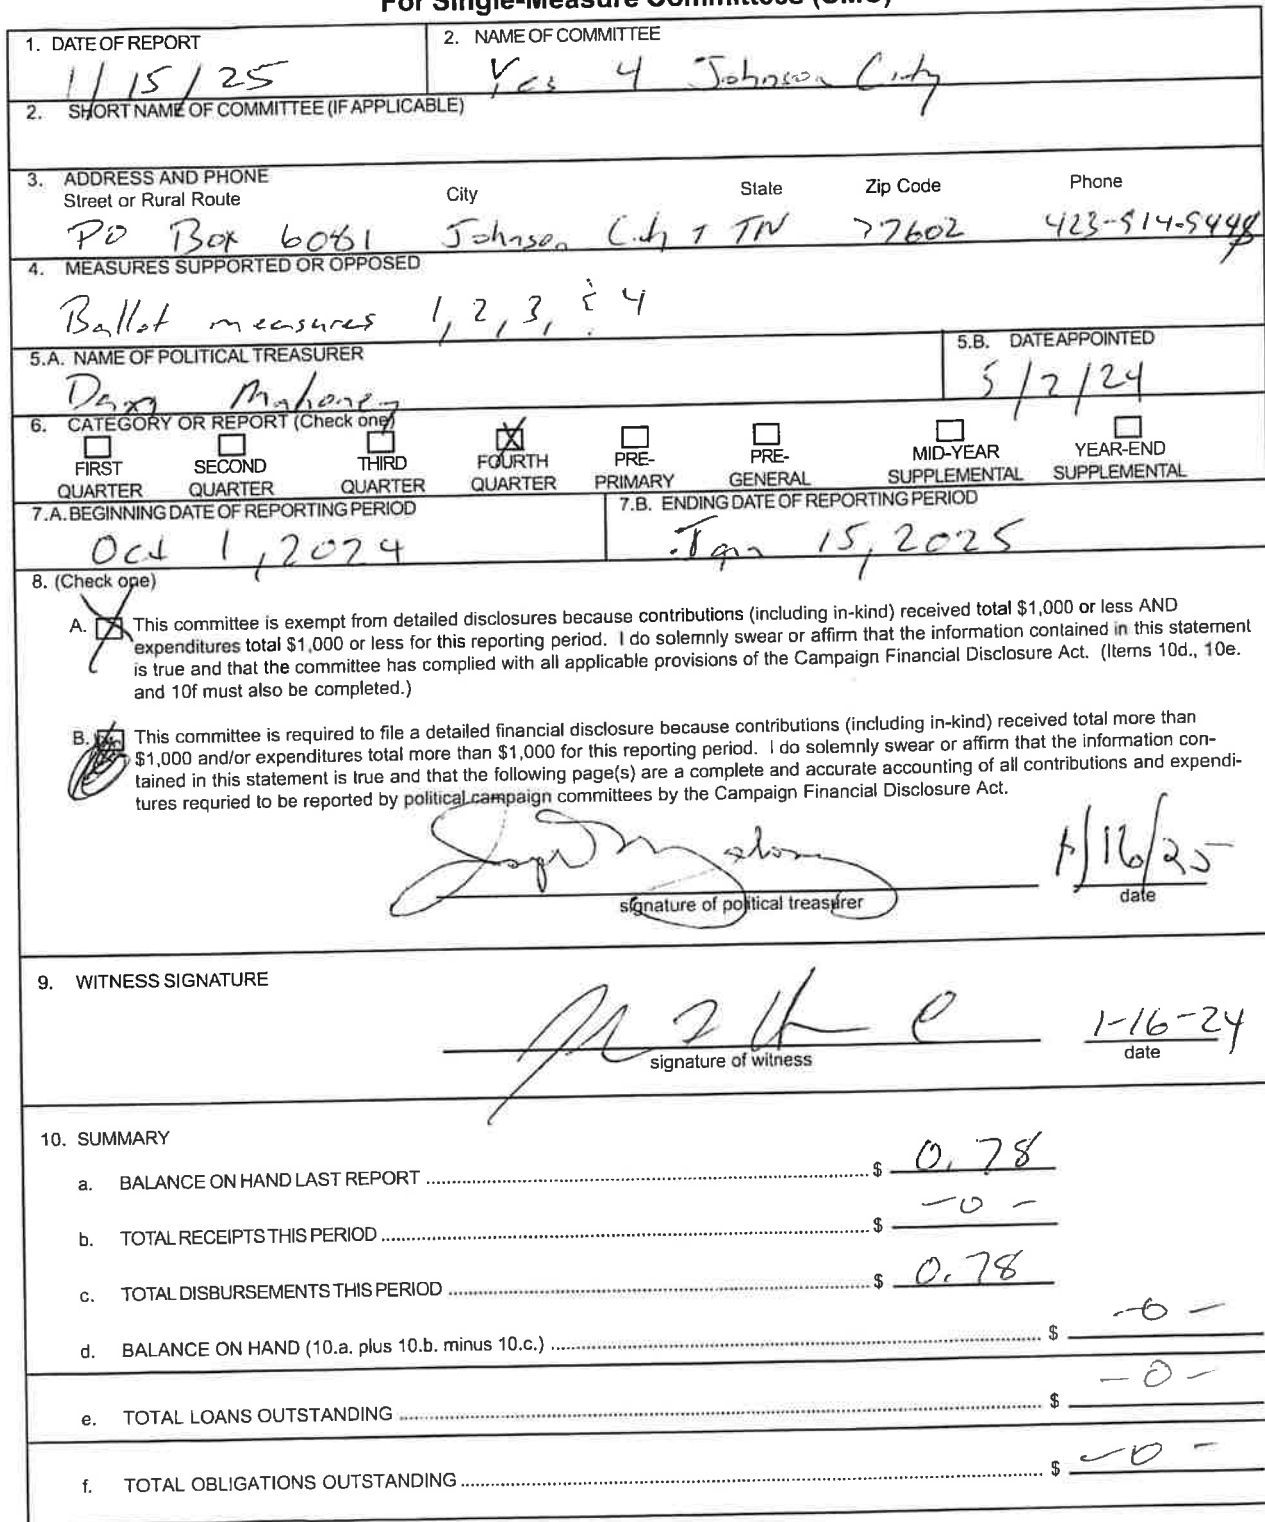 For Single-Measure Committees (SMC)
1. DATE OF REPORT
1/15/25
2. NAME OF COMMITTEE
Yes 4 Johnson City
2. SHORT NAME OF COMMITTEE (IF APPLICABLE)
3. ADDRESS AND PHONE
Street or Rural Route City State Zip Code Phone
PO Box 6081 Johnson City TN 37602
4. MEASURES SUPPORTED OR OPPOSED
Ballot measures 1, 2, 3, & 4
5.A. NAME OF POLITICAL TREASURER
Mahoney
5.B. DATE APPOINTED
5/2/24
6. CATEGORY OR REPORT (Check one)
FIRST QUARTER
SECOND QUARTER
THIRD QUARTER
FOURTH QUARTER
PRE-PRIMARY
PRE-GENERAL
MID-YEAR SUPPLEMENTAL
YEAR-END SUPPLEMENTAL
7.A. BEGINNING DATE OF REPORTING PERIOD
Oct 1, 2024
7.B. ENDING DATE OF REPORTING PERIOD
Jan 15, 2025
8. (Check one)
A. This committee is exempt from detailed disclosures because contributions (including in-kind) received total $1,000 or less AND
expenditures total $1,000 or less for this reporting period. I do solemnly swear or affirm that the information contained in this statement
is true and that the committee has complied with all applicable provisions of the Campaign Financial Disclosure Act. (Items 10d., 10e.
and 10f must also be completed.)
B. This committee is required to file a detailed financial disclosure because contributions (including in-kind) received total more than
$1,000 and/or expenditures total more than $1,000 for this reporting period. I do solemnly swear or affirm that the information con-
tained in this statement is true and that the following page(s) are a complete and accurate accounting of all contributions and expendi-
tures requried to be reported by political campaign committees by the Campaign Financial Disclosure Act.
1/16/25
signature of political treasurer date
9. WITNESS SIGNATURE
1-16-24
signature of witness date
10. SUMMARY
a. BALANCE ON HAND LAST REPORT $ 0.78
b. TOTAL RECEIPTS THIS PERIOD $ -0-
c. TOTAL DISBURSEMENTS THIS PERIOD $ 0.78
d. BALANCE ON HAND (10.a. plus 10.b. minus 10.c.) $ -0-
e. TOTAL LOANS OUTSTANDING $ -0-
f. TOTAL OBLIGATIONS OUTSTANDING $ -0-